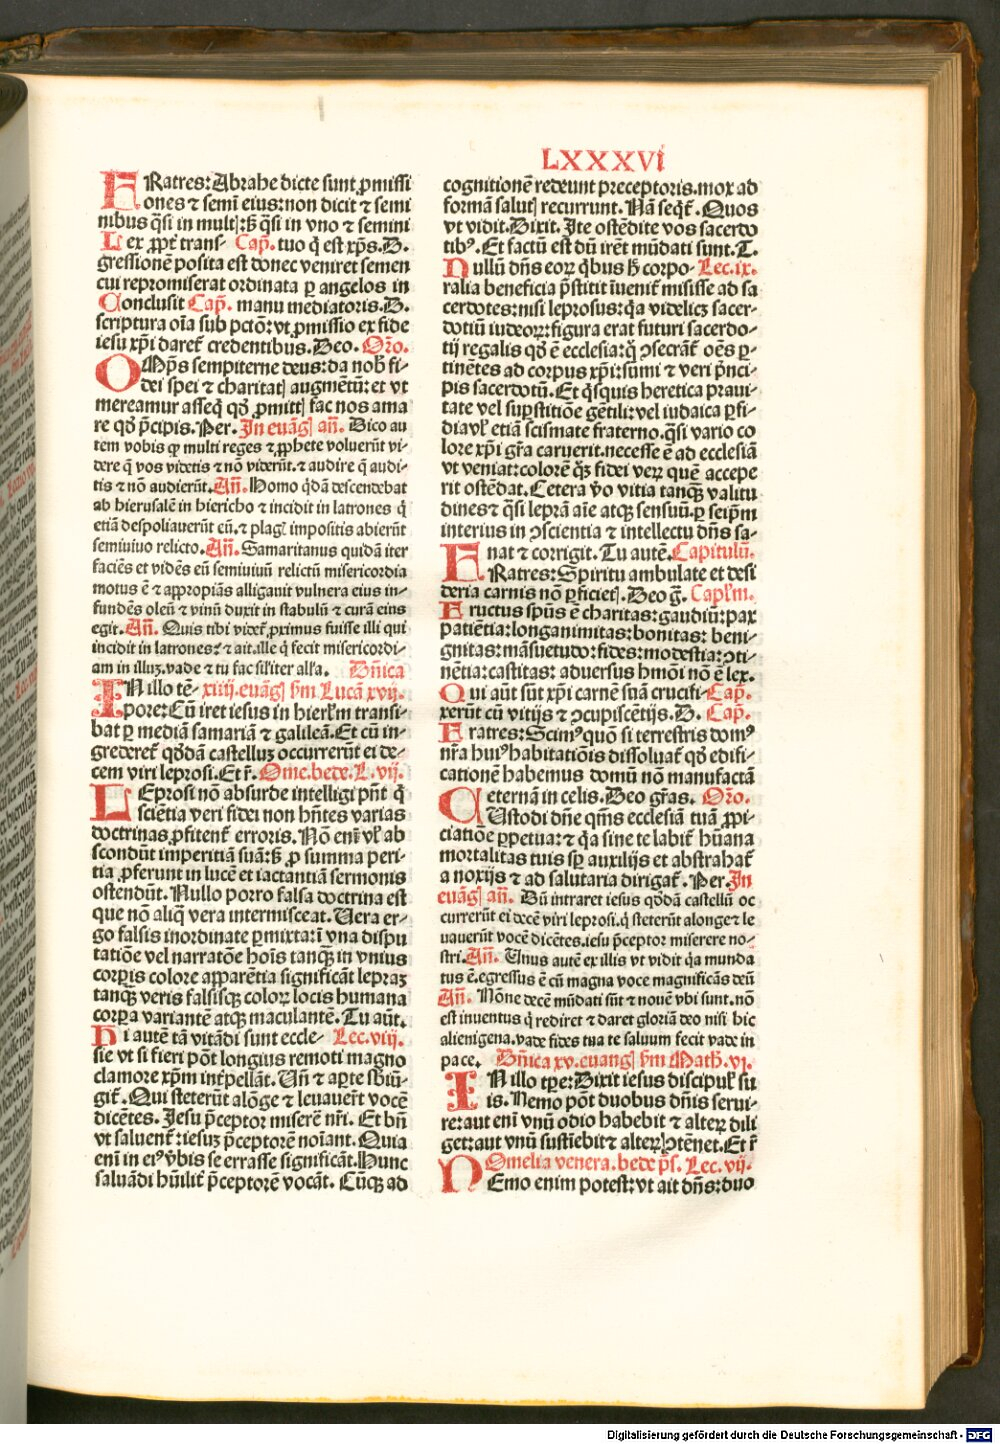 LXXXVI
FRatres: Abrahe dicte sunt ꝓmissi
ones ⁊ semī eius: non dicit ⁊ semi
nibus q̄si in multꝭ: sꝫ q̄si in vno ⁊ semini
Lex ꝓpt̄ trans- Cap. tuo q̄ est xp̄s. D.
gressionē posita est donec veniret semen
cui repromiserat ordinata ꝑ angelos in
Conclusit Cap. manu mediatoris. D.
scriptura oīa sub pctō: vt ꝓmissio ex fide
iesu xp̄i daret̄ credentibus. Deo. Orō.
OMp̄s sempiterne deus: da nob̄ fi-
dei spei ⁊ charitatꝭ augmētū: et vt
mereamur asseq̄ qð ꝓmittꝭ fac nos ama
re qð p̄cipis. Per. In euāgꝭ añ. Dico au
tem vobis qꝛ multi reges ⁊ ꝓphete voluerūt vi-
dere q̄ vos videtis ⁊ nō viderūt. ⁊ audire q̄ audi-
tis ⁊ nō audierūt. Añ. Homo qdā descendebat
ab hierusalē in hiericho ⁊ incidit in latrones q̄
etiā despoliauerūt eū. ⁊ plagꝭ impositis abierūt
semiuiuo relicto. Añ. Samaritanus quidā iter
faciēs et vidēs eū semiuiuū relictū misericordia
motus ē ⁊ appropiās alligauit vulnera eius in-
fundēs oleū ⁊ vinū duxit in stabulū ⁊ curā eius
egit. Añ. Quis tibi videt̄ ꝓximus fuisse illi qui
incidit in latrones? ⁊ ait. ille q̄ fecit misericordi-
am in illuꝫ. vade ⁊ tu fac sil'iter all'a. Dñica
IN illo tē- xiiij. euāgꝭ ẜm Lucā xvij.
pore: Cū iret iesus in hierl'm transi-
bat ꝑ mediā samariā ⁊ galileā. Et cū in-
grederet̄ qðdā castelluꝫ occurrerūt ei de-
cem viri leprosi. Et r̄. Ome. bede. L. vij.
LEprosi nō absurde intelligi pn̄t q̄
sciētia veri fidei non hn̄tes varias
doctrinas ꝓfitent̄ erroris. Nō enī vl' ab
scondūt imperitiā suā: sꝫ ꝓ summa peri-
tia ꝓferunt in lucē et iactantiā sermonis
ostendūt. Nullo porro falsa doctrina est
que nō aliq̄ vera intermisceat. Uera er-
go falsis inordinate ꝑmixta: ī vna dispu
tatiōe vel narratōe hoīs tanqꝫ in vnius
corꝑis colore apparētia significāt lepraꝫ
tanqꝫ veris falsisqꝫ coloꝝ locis humana
corꝑa variantē atqꝫ maculantē. Tu aūt.
Hi autē tā vitādi sunt eccle- Lec. viij.
sie vt si fieri pōt longius remoti magno
clamore xp̄m int̄pellāt. Uñ ⁊ aꝑte sbiū-
git̄. Qui steterūt alōge ⁊ leuauerūt vocē
dicētes. Jesu p̄ceptor miserē nr̄i. Et bñ
vt saluent̄: iesuꝫ p̄ceptorē noīant. Quia
enī in eiꝰ v̄bis se errasse significāt. Hunc
saluādi hūilit̄ p̄ceptorē vocāt. Cūqꝫ ad
cognitionē redeunt preceptoris. mox ad
formā salutꝭ recurrunt. Nā seqt̄. Quos
vt vidit. Dixit. Ite ostēdite vos sacerdo
tibꝰ. Et factū est dū irēt mūdati sunt. T.
Nullū dn̄s eoꝝ q̄bus h̄ corpo- Lec. ix.
ralia beneficia p̄stitit īuenit̄ misisse ad sa
cerdotes: nisi leprosus: q̄a videlicꝫ sacer-
dotiū iudeoꝝ: figura erat futuri sacerdo-
tij regalis qð ē ecclesia: q̄ ꝯsecrāt̄ oēs ꝑ-
tinētes ad corpus xp̄i: sūmi ⁊ veri p̄nci-
pis sacerdotū. Et q̄squis heretica praui-
tate vel suꝑstitiōe gētili: vel iudaica ꝑfi-
dia vl' etiā scismate fraterno. q̄si vario co
lore xp̄i gr̄a caruerit. necesse ē ad ecclesiā
vt veniat: colorē q̄ꝫ fidei veꝝ quē accepe
rit ostēdat. Cetera v̄o vitia tanqꝫ valitu
dinē ⁊ q̄si leprā aīe atqꝫ sensuū. ꝑ seip̄m
interius in ꝯscientia ⁊ intellectu dn̄s sa-
nat ⁊ corrigit. Tu autē. Capitulū.
FRatres: Spiritu ambulate et desi
deria carnis nō ꝑficietꝭ. Deo ḡ. Capl'm.
Fructus spūs ē charitas: gaudiū: pax
patiētia: longanimitas: bonitas: beni-
gnitas: māsuetudo: fides: modestia: ꝯti-
nētia: castitas: aduersus hmōi nō ē lex.
Qui aūt sūt xp̄i carnē suā crucifi- Cap.
xerūt cū vitijs ⁊ ꝯcupiscētijs. D. Cap.
Fratres: Scimꝰ quō si terrestris domꝰ
nr̄a huiꝰ habitatiōis dissoluat̄ qð edifi-
cationē habemus domū nō manufactā
eternā in celis. Deo gr̄as. Orō.
CUstodi dn̄e q̄m̄s ecclesiā tuā ꝓpi-
ciatiōe ꝑpetua: ⁊ q̄a sine te labit̄ hūana
mortalitas tuis sp̄ auxilijs et abstrahat̄
a noxijs ⁊ ad salutaria dirigat̄. Per. In
euāgꝭ añ. Dū intraret iesus qðdā castellū oc
currerūt ei decē viri leprosi. q̄ steterūt alonge ⁊ le
uauerūt vocē dicētes. iesu p̄ceptor miserere no-
stri. Añ. Unus autē ex illis vt vidit q̄a munda
tus ē. egressus ē cū magna voce magnificās deū
Añ. Nōne decē mūdati sūt ⁊ nouē vbi sunt. nō
est inuentus q̄ rediret ⁊ daret gloriā deo nisi hic
alienigena. vade fides tua te saluum fecit vade in
pace. Dñica xv. euangꝭ ẜm Math. vi.
IN illo tp̄e: Dixit iesus discipul' su
is. Nemo pōt duobus dn̄is serui-
re: aut enī vnū odio habebit ⁊ alteꝝ dili
get: aut vnū sustīebit ⁊ alteꝝ ꝯtēnet. Et r̄
Omelia venera. bede p̄s. Lec. vij.
NEmo enim potest: vt ait dn̄s: duo
Digitalisierung gefördert durch die Deutsche Forschungsgemeinschaft - DFG